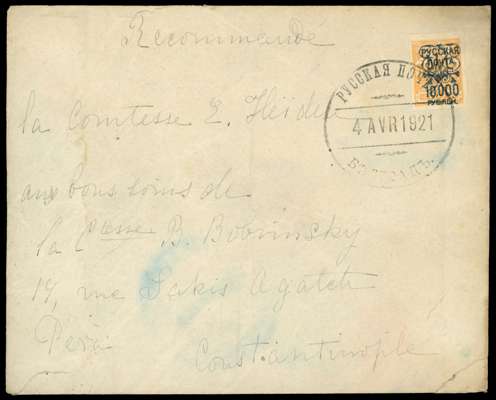 Recommandé
РУССКАЯ
ПОЧТА
10.000
РУБЛЕЙ.
РУССКАЯ ПОЧ
4 AVR 1921
la Comtesse E. Heiden
aux bons soins de
la Csse B. Bobrinsky
19, rue Sakis Agatch
Péra
Constantinople